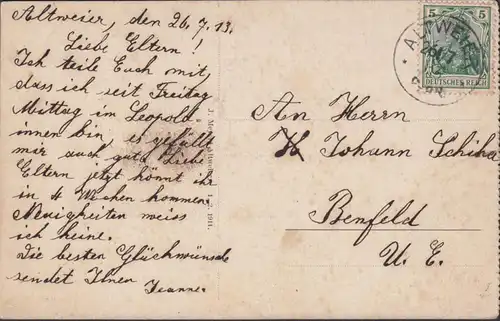 Altweier, den 26.7.13.
Liebe Eltern!
Ich teile Euch mit,
dass ich seit Freitag
Mittag im Leopold
innen bin, es gefällt
mir auch gut. Liebe
Eltern jetzt könnt ihr
in 4 Wochen kommen.
Neuigkeiten weiss
ich keine.
Die besten Glückwünsche
sendet Ihnen Jeanne.
5 5
DEUTSCHES REICH
ALTWEIER
An Herrn
Johann Schika
Benfeld
U. E.